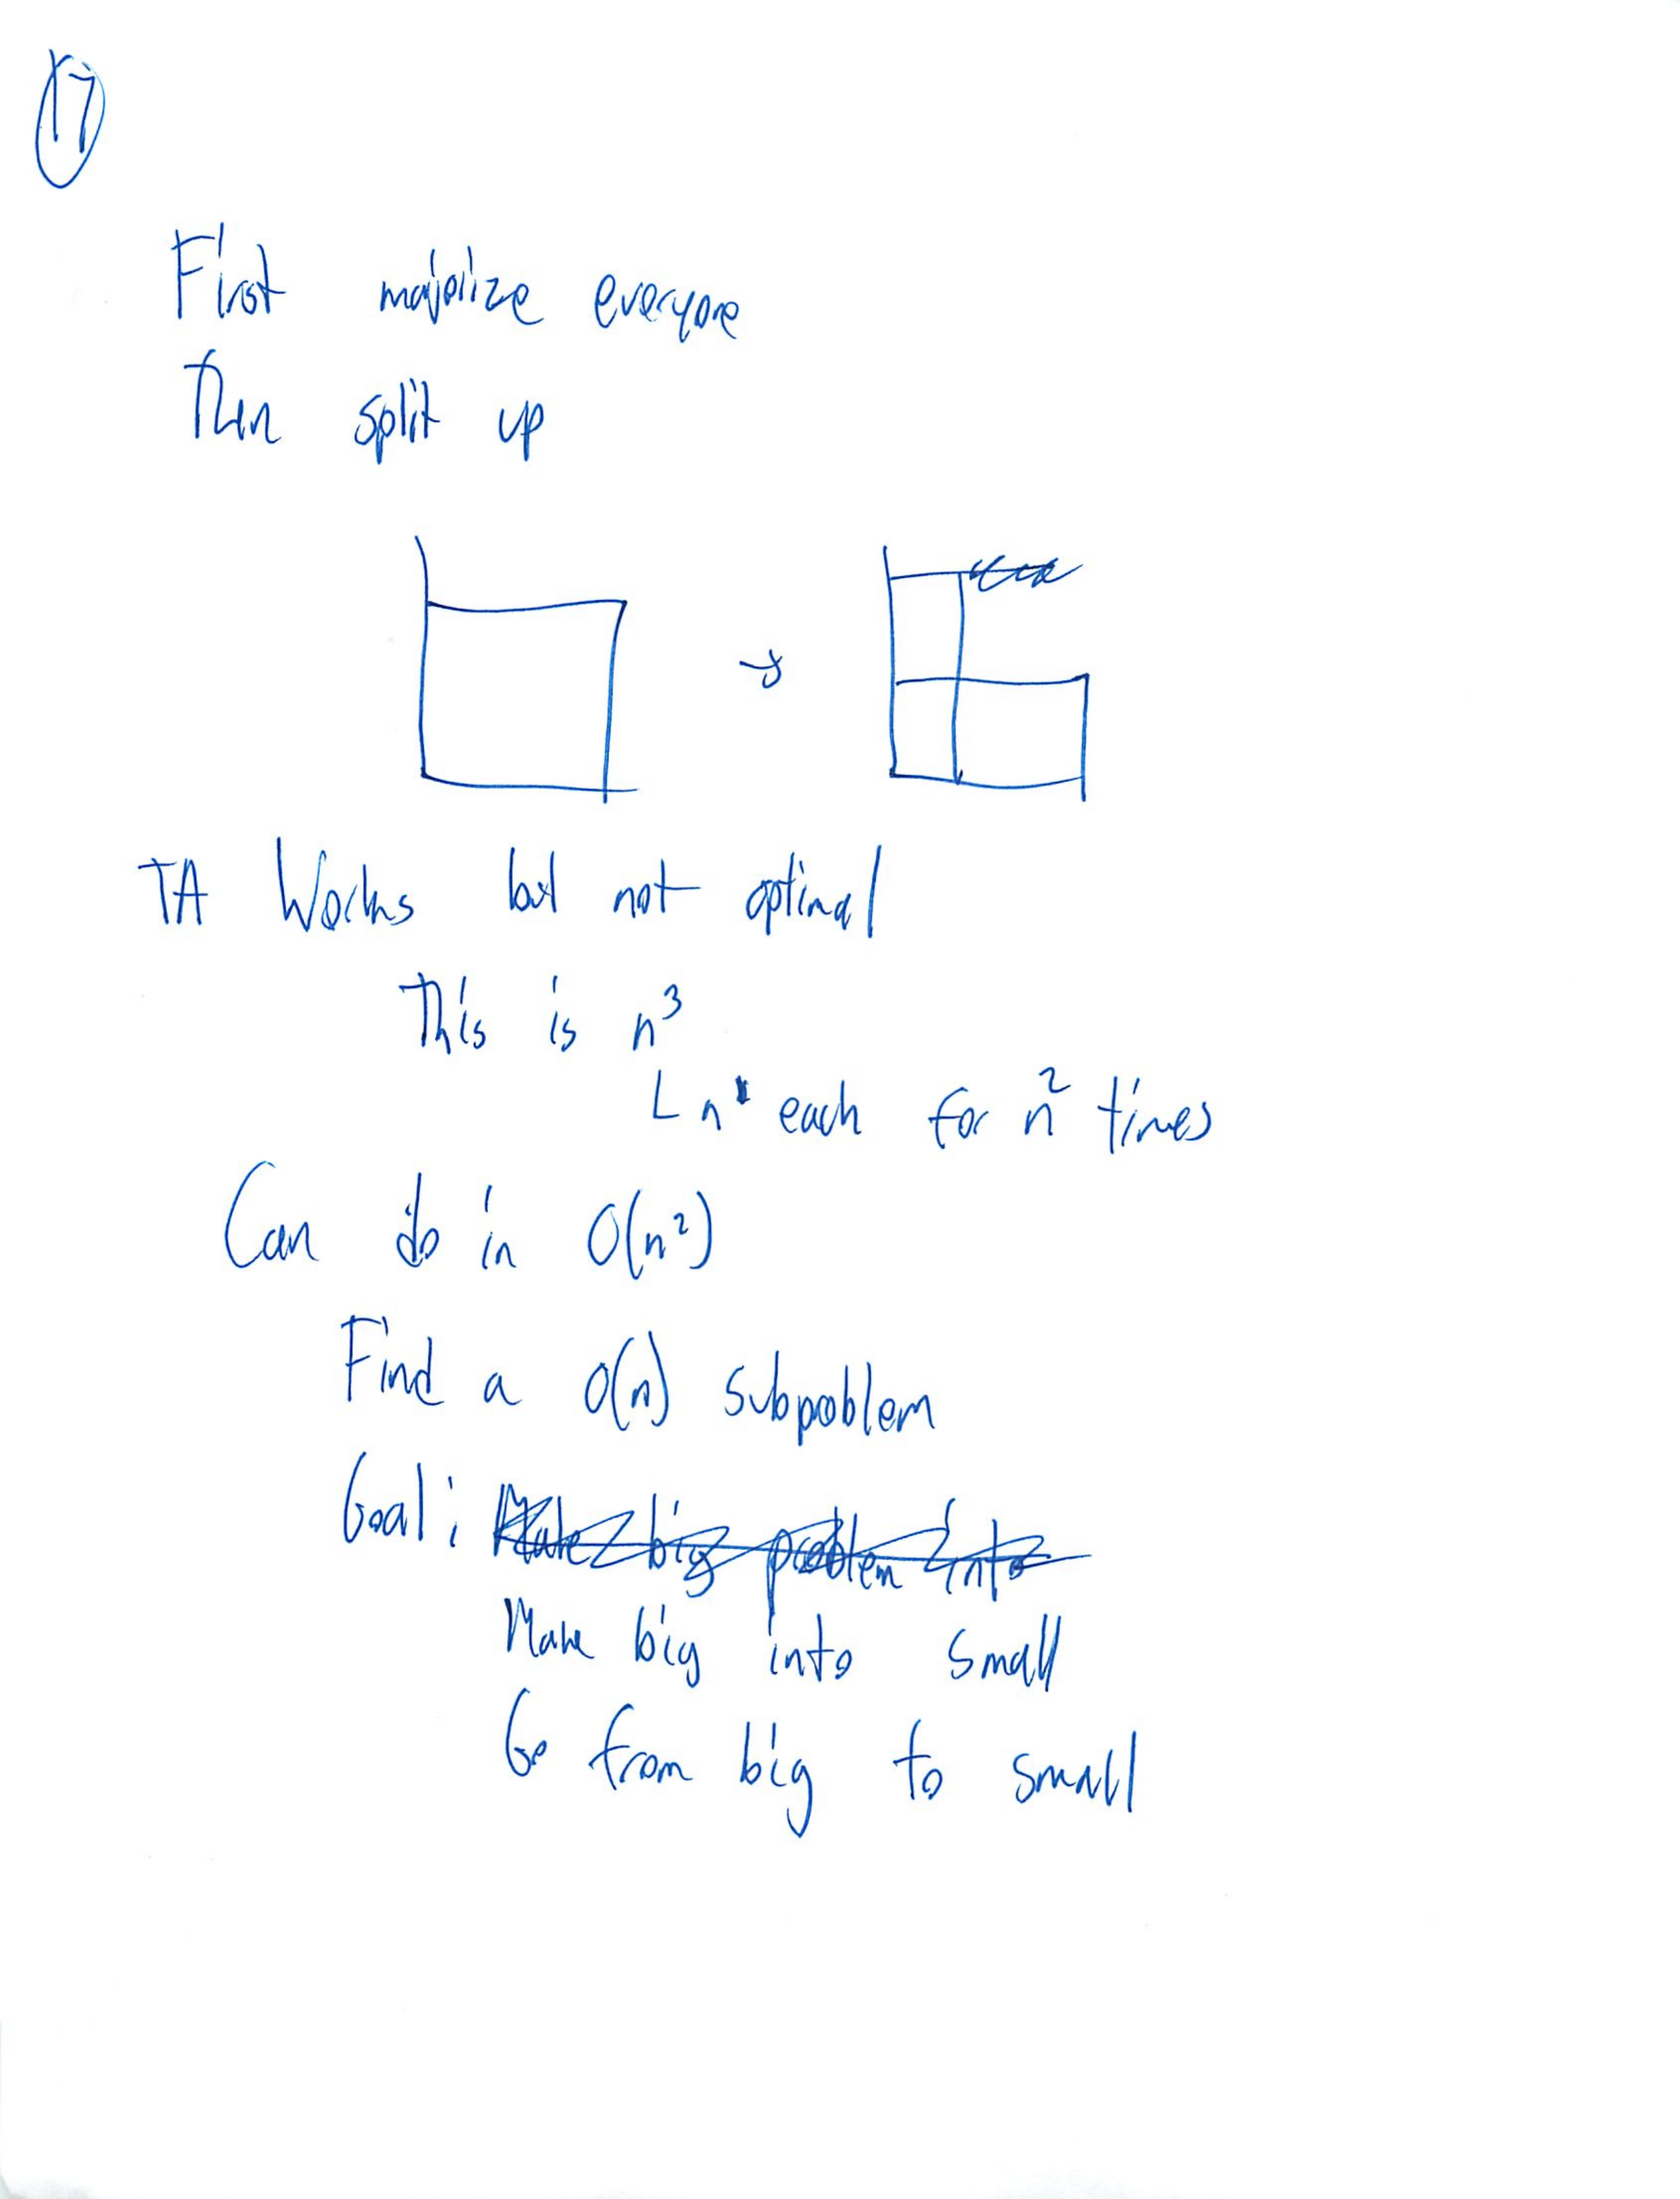 17
First majorize everyone
Then split up
→
TA Works but not optimal
This is n³
L n each for n² times
Can do in O(n²)
Find a O(n) subpoblem
Goal: Make big problem into
Make big into small
Go from big to small